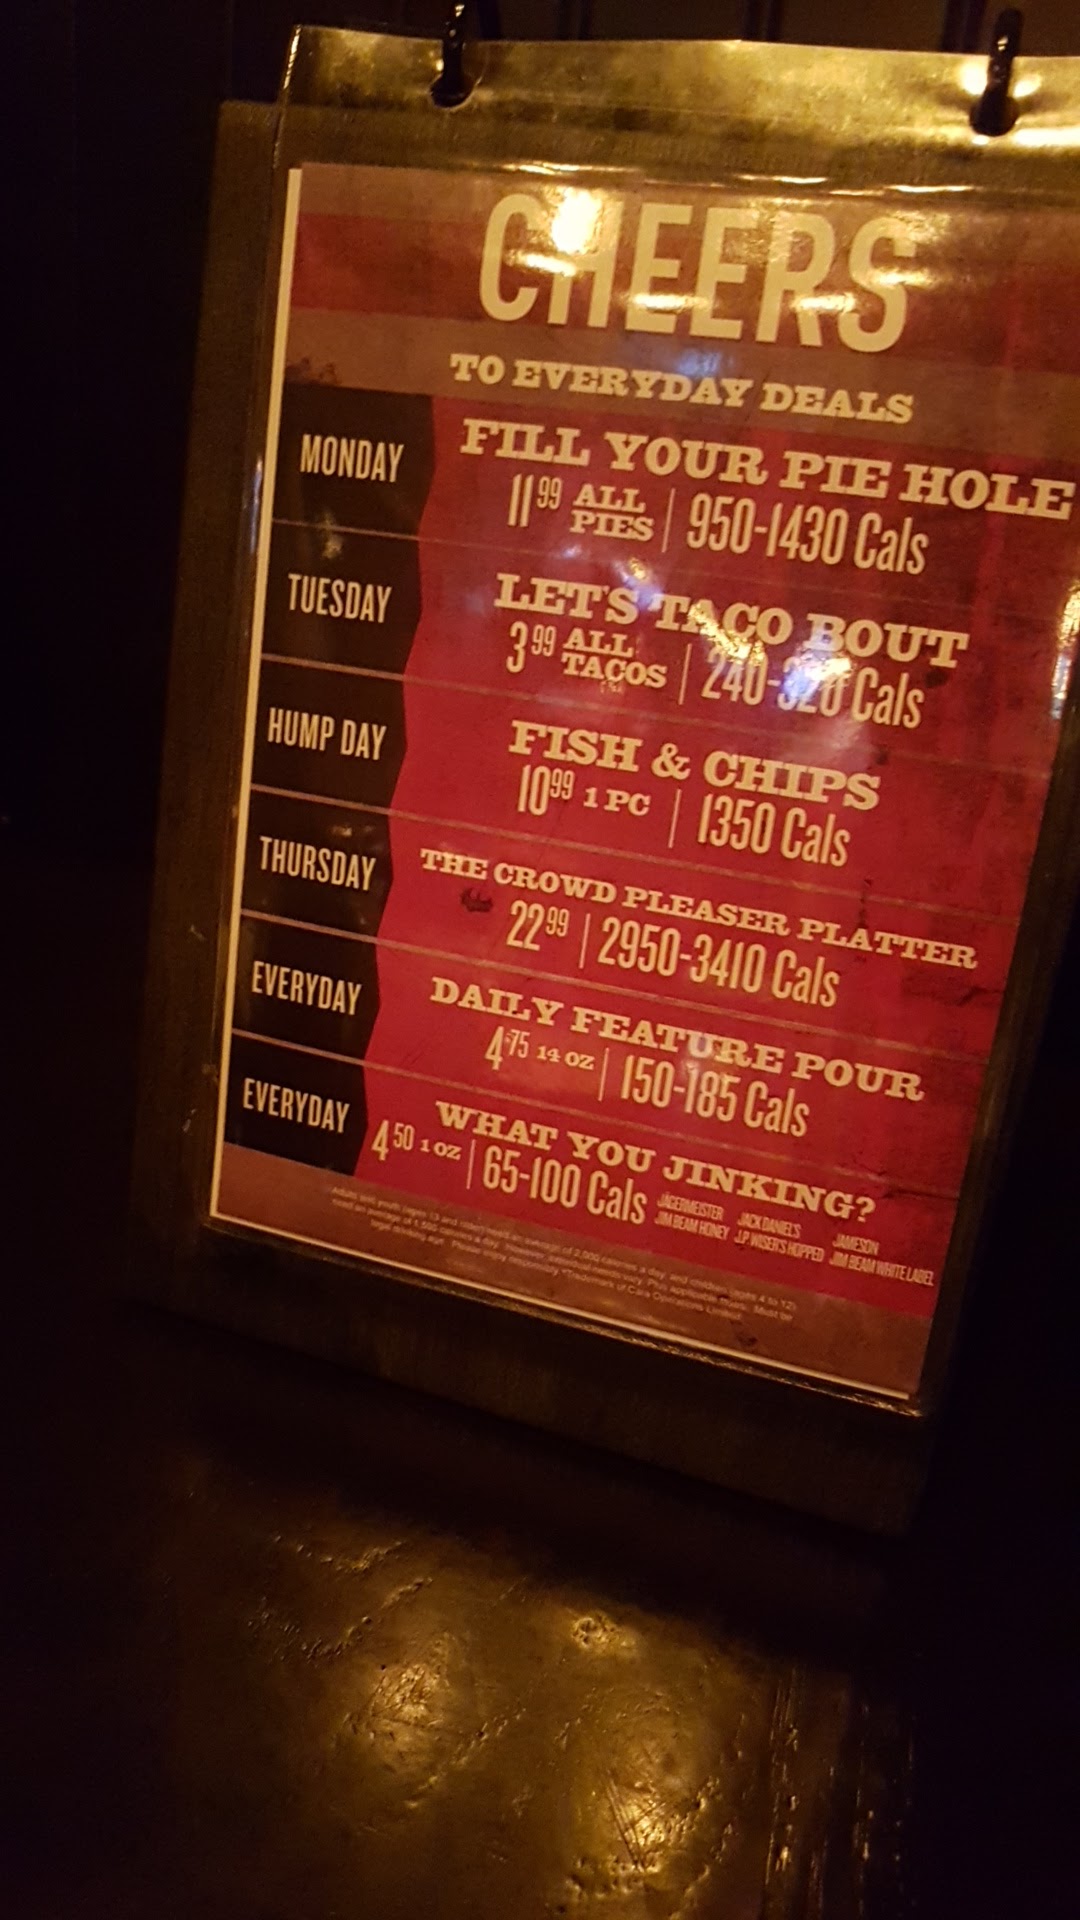 CHEERS
TO EVERYDAY DEALS
MONDAY
FILL YOUR PIE HOLE
11 99 ALL PIES | 950-1430 Cals
TUESDAY
LET'S TACO BOUT
3 99 ALL TACOS | 240-320 Cals
HUMP DAY
FISH & CHIPS
10 99 1 PC | 1350 Cals
THURSDAY
THE CROWD PLEASER PLATTER
22 99 | 2950-3410 Cals
EVERYDAY
DAILY FEATURE POUR
4 75 14 OZ | 150-185 Cals
EVERYDAY
WHAT YOU JINKING?
4 50 1 OZ | 65-100 Cals
JÄGERMEISTER JACK DANIEL'S JAMESON
JIM BEAM HONEY J.P. WISER'S HOPPED JIM BEAM WHITE LABEL
Adults and youth (ages 13 and older) need an average of 2,000 calories a day, and children (ages 4 to 12)
need an average of 1,500 calories a day. However, individual needs vary. Plus applicable taxes. Must be
legal drinking age. Please enjoy responsibly. Trademark of Cara Operations Limited.